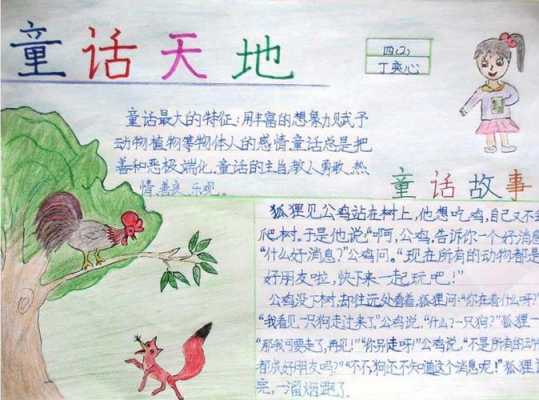 童话天地
四(2)
丁奕心
童话最大的特征:用丰富的想象力赋予
动物植物等物体人的感情,童话总是把
善和恶极端化,童话的主旨教人勇敢、热
情、善良、乐观。
童话故事
狐狸见公鸡站在树上,他想吃鸡,自己又不会
爬树。于是他说“啊,公鸡,告诉你一个好消息
“什么好消息?”公鸡问。“现在所有的动物都是
好朋友啦,快下来一起玩吧!”
公鸡没下树,却往远处看着,狐狸问:“你在看什么呀?”
“我看见一只狗走过来了,”公鸡说,“什么?一只狗?”狐狸
“那我可要走了,再见!”“你别走呀!”公鸡说,“不是所有的动物
都成好朋友吗?”“不,不,狗还不知道这个消息呢!”狐狸
完,一溜烟跑了